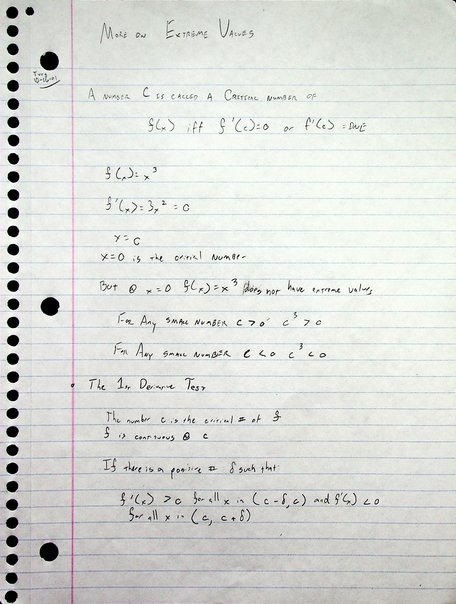 More on Extreme Values
Tues
A number c is called a Critical number of
f(x) iff f'(c)=0 or f'(c) = DNE
f(x)=x³
f'(x)=3x²=0
x=0
x=0 is the critical number
But @ x=0 f(x)=x³ does not have extreme values
For Any small number c>0 c³>0
For Any small number c<0 c³<0
• The 1st Derivative Test
The number c is the critical # of f
f is continuous @ c
If there is a positive # δ such that:
f'(x) >0 for all x in (c-δ, c) and f'(x) <0
for all x in (c, c+δ)